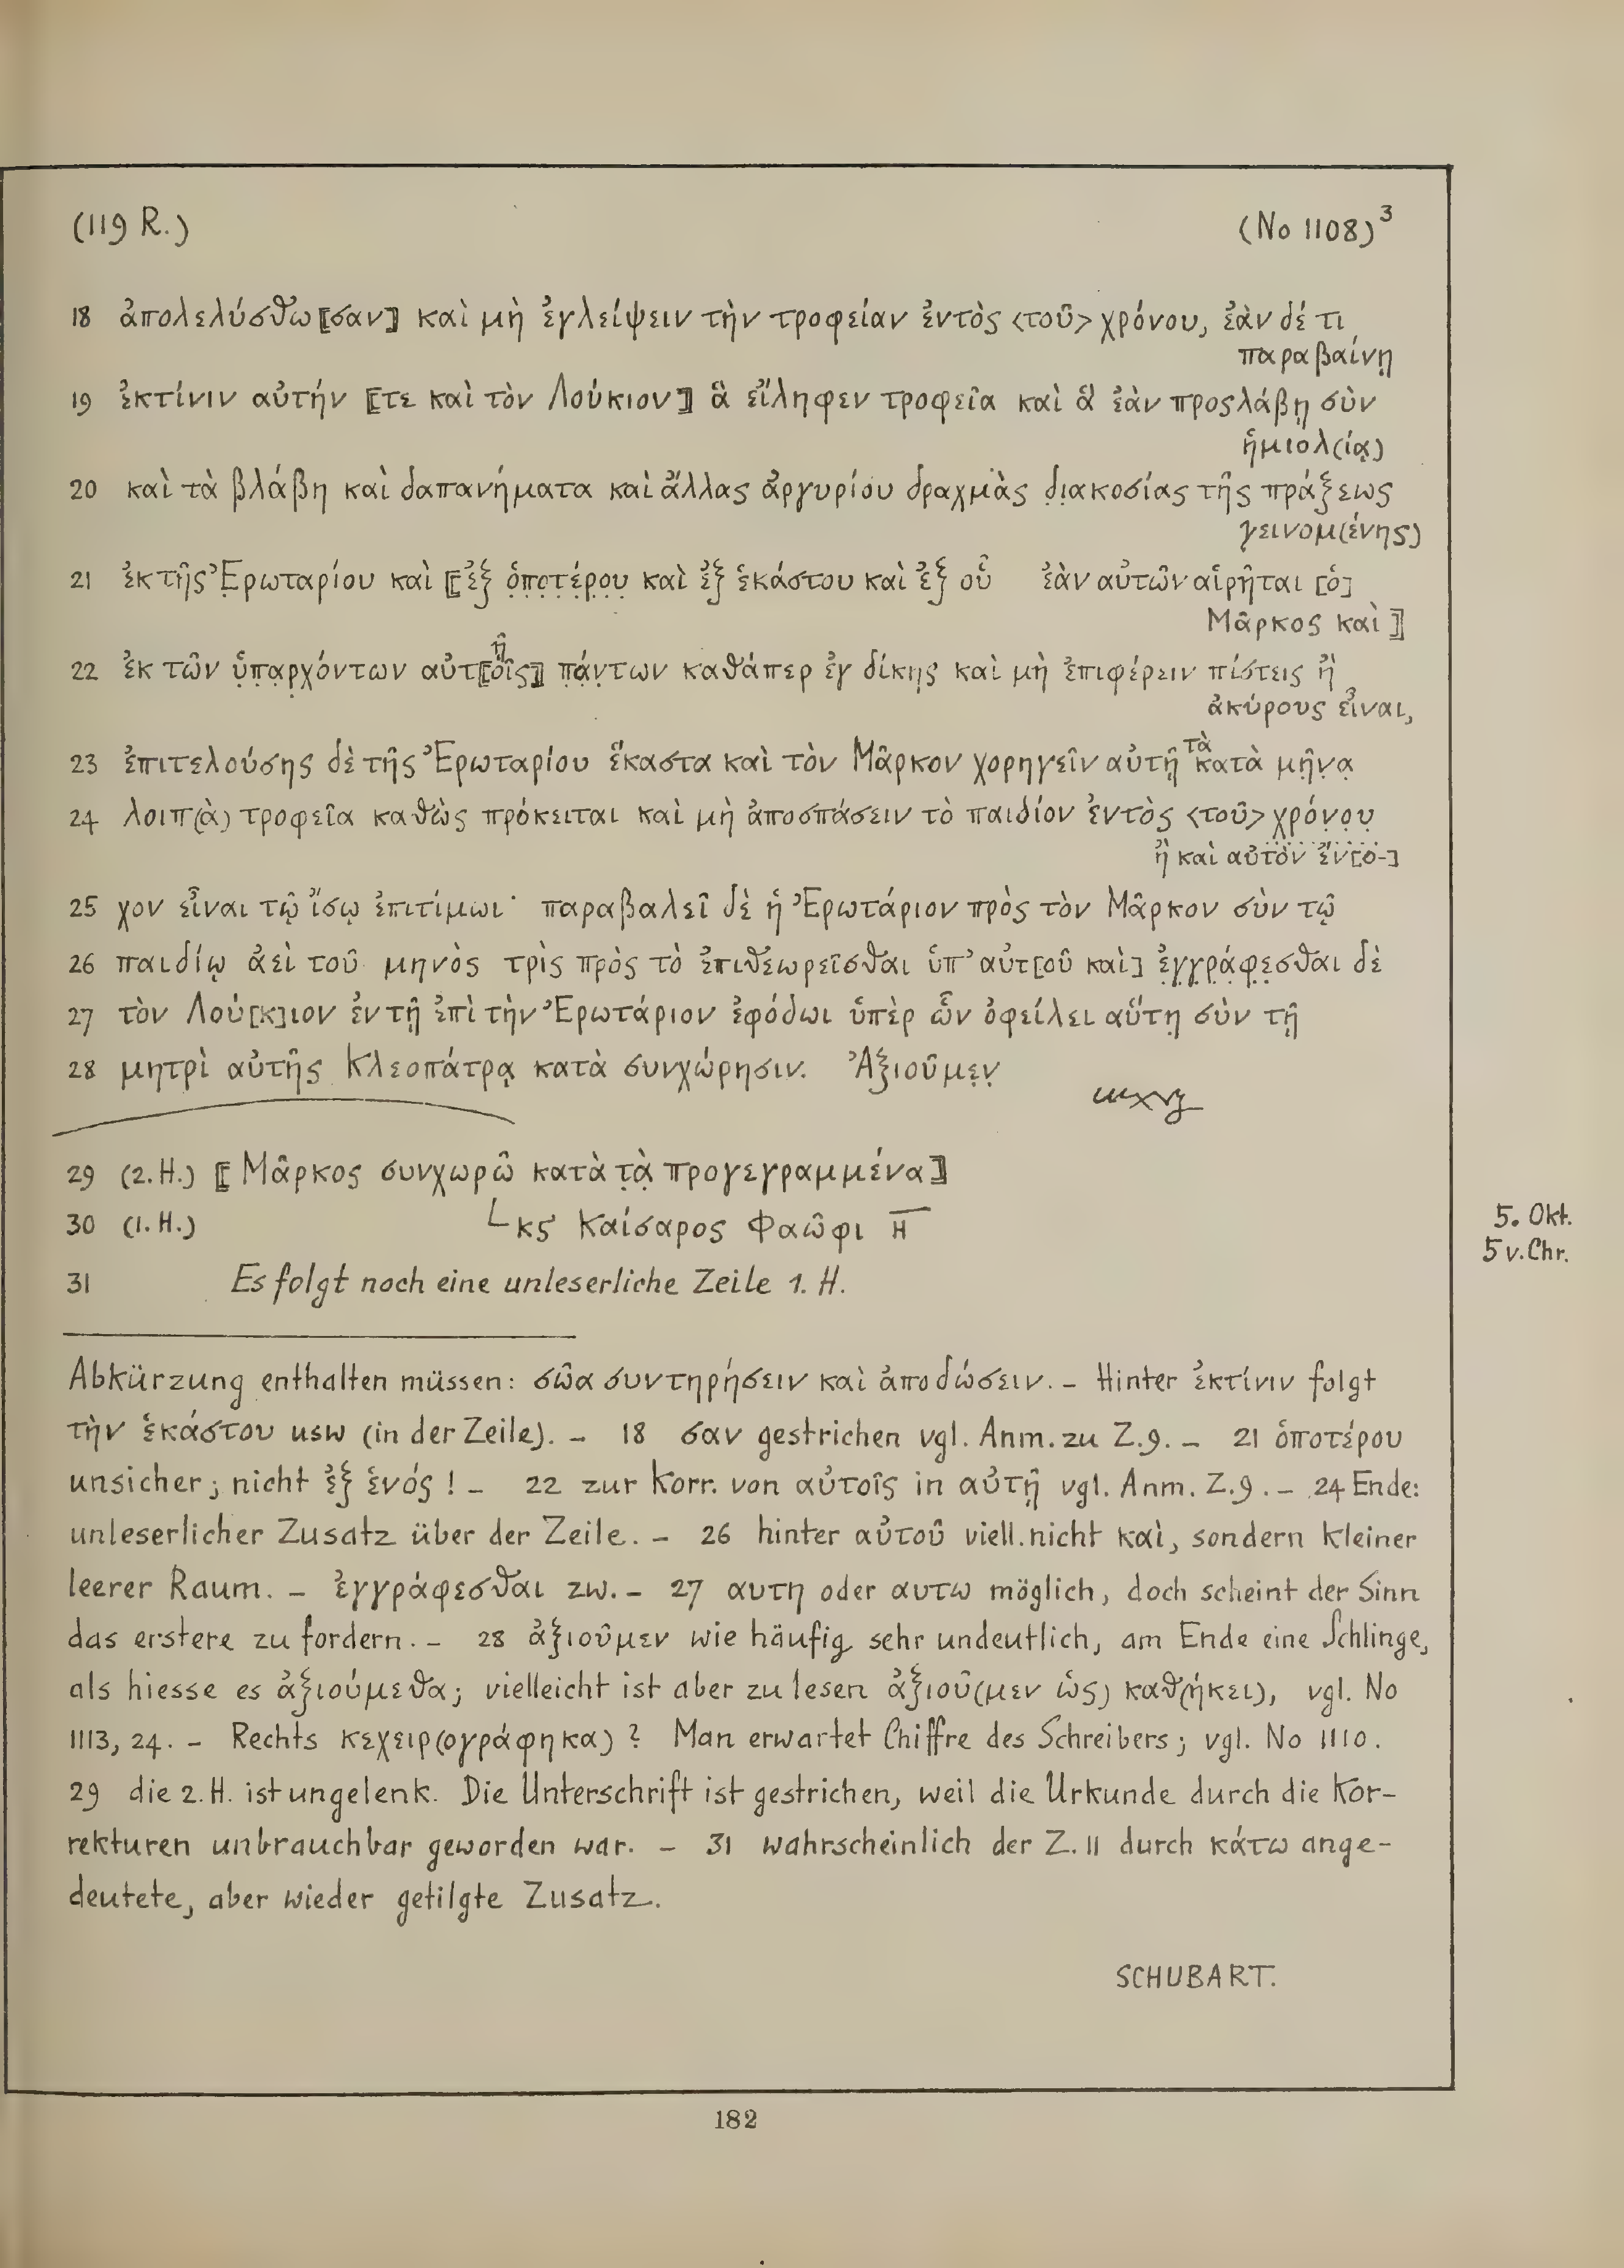 (119 R.) (No 1108)³
18 ἀπολελύσθω⟦σαν⟧ καὶ μὴ ἐγλείψειν τὴν τροφείαν ἐντὸς <τοῦ> χρόνου, ἐὰν δέ τι
παραβαίνῃ
19 ἐκτίνιν αὐτήν ⟦τε καὶ τὸν Λούκιον⟧ ἃ εἴληφεν τροφεῖα καὶ ἃ ἐὰν προςλάβῃ σὺν
ἡμιολ(ίᾳ)
20 καὶ τὰ βλάβη καὶ δαπανήματα καὶ ἄλλας ἀργυρίου δραχμὰς δ̣ι̣ακοσίας τῆς πράξεως
γεινομ(ένης)
21 ἐκ τῆς Ἐ̣ρωταρίου καὶ ⟦ἐ̣ξ̣ ὁ̣π̣ο̣τ̣έ̣ρ̣ο̣υ̣ καὶ ἐξ ἑκάστου καὶ ἐξ οὗ ἐὰν αὐτῶν αἱρῆται [ὁ]
Μᾶρκος καὶ⟧
22 ἐκ τῶν ὑ̣π̣α̣ρ̣χ̣όντων αὐτ⟦οῖς⟧ῆ π̣ά̣ν̣των καθάπερ ἐγ δίκης καὶ μὴ ἐπιφέρειν πίστεις ἢ
ἀκύρους εἶναι,
23 ἐπιτελούσης δὲ τῆς Ἐρωταρίου ἕκαστα καὶ τὸν Μᾶρκον χορηγεῖν αὐτῇ τὰ κατὰ μῆ̣ν̣α̣
24 λοιπ(ὰ) τροφεῖα καθὼς πρόκειται καὶ μὴ ἀποσπάσειν τὸ παιδίον ἐντὸς <τοῦ> χ̣ρ̣ό̣ν̣ο̣υ̣
ἢ καὶ αὐτὸν ἔν[ο-]
25 χον εἶναι τῷ ἴσῳ ἐπιτίμωι· παραβαλεῖ δὲ ἡ Ἐρωτάριον πρὸς τὸν Μᾶρκον σὺν τῷ
26 παιδίῳ ἀεὶ τοῦ μηνὸς τρὶς πρὸς τὸ ἐπιθεωρεῖσθαι ὑπ’ αὐτ[οῦ καὶ] ἐ̣γ̣γ̣ρ̣ά̣φ̣ε̣σθαι δὲ
27 τὸν Λού[κ]ιον ἐν τῇ ἐπὶ τὴν Ἐρωτάριον ἐφόδωι ὑπὲρ ὧν ὀφείλει αὕτη̣ σὺν τῇ
28 μητρὶ αὐτῆς Κλεοπάτρᾳ κατὰ συνχώρησιν. Ἀξιοῦμε̣ν̣
29 (2. H.) ⟦Μᾶρκος συνχωρῶ κατὰ τ̣ὰ̣ προγεγραμμένα⟧
30 (1. H.) └κϛ Καίσαρος Φαῶφι H̅
5. Okt.
5 v. Chr.
31 Es folgt noch eine unleserliche Zeile 1. H.
Abkürzung enthalten müssen: σῶα συντηρήσειν καὶ ἀποδώσειν. – Hinter ἐκτίνιν folgt
τὴν ἑκάστου usw (in der Zeile). – 18 σαν gestrichen vgl. Anm. zu Z. 9. – 21 ὁποτέρου
unsicher; nicht ἐξ ἑνός! – 22 zur Korr. von αὐτοῖς in αὐτῇ vgl. Anm. Z. 9. – 24 Ende:
unleserlicher Zusatz über der Zeile. – 26 hinter αὐτοῦ viell. nicht καὶ, sondern kleiner
leerer Raum. – ἐγγράφεσθαι zw. – 27 αυτη oder αυτω möglich, doch scheint der Sinn
das erstere zu fordern. – 28 ἀξιοῦμεν wie häufig sehr undeutlich, am Ende eine Schlinge,
als hiesse es ἀξιούμεθα; vielleicht ist aber zu lesen ἀξιοῦ(μεν ὡς) καθ(ήκει), vgl. No
1113, 24. – Rechts κεχειρ(ογράφηκα)? Man erwartet Chiffre des Schreibers; vgl. No 1110.
29 die 2. H. ist ungelenk. Die Unterschrift ist gestrichen, weil die Urkunde durch die Kor-
rekturen unbrauchbar geworden war. – 31 wahrscheinlich der Z. 11 durch κάτω ange-
deutete, aber wieder getilgte Zusatz.
SCHUBART.
182